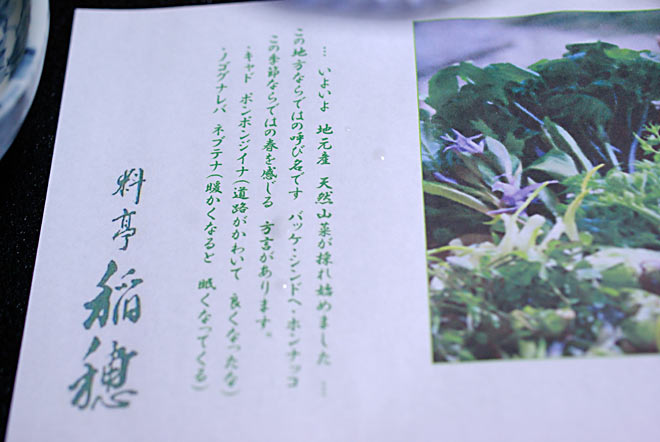 … いよいよ 地元産 天然山菜が採れ始めました …
この地方ならではの呼び名です バッケ・シンドヘ・ホンナッコ
この季節ならではの春を感じる 方言があります。
・キャド ポンポンジイナ(道路がかわいて 良くなったな)
・ノゴグナレバ ネプテナ(暖かくなると 眠くなってくる)
料亭 稲穂